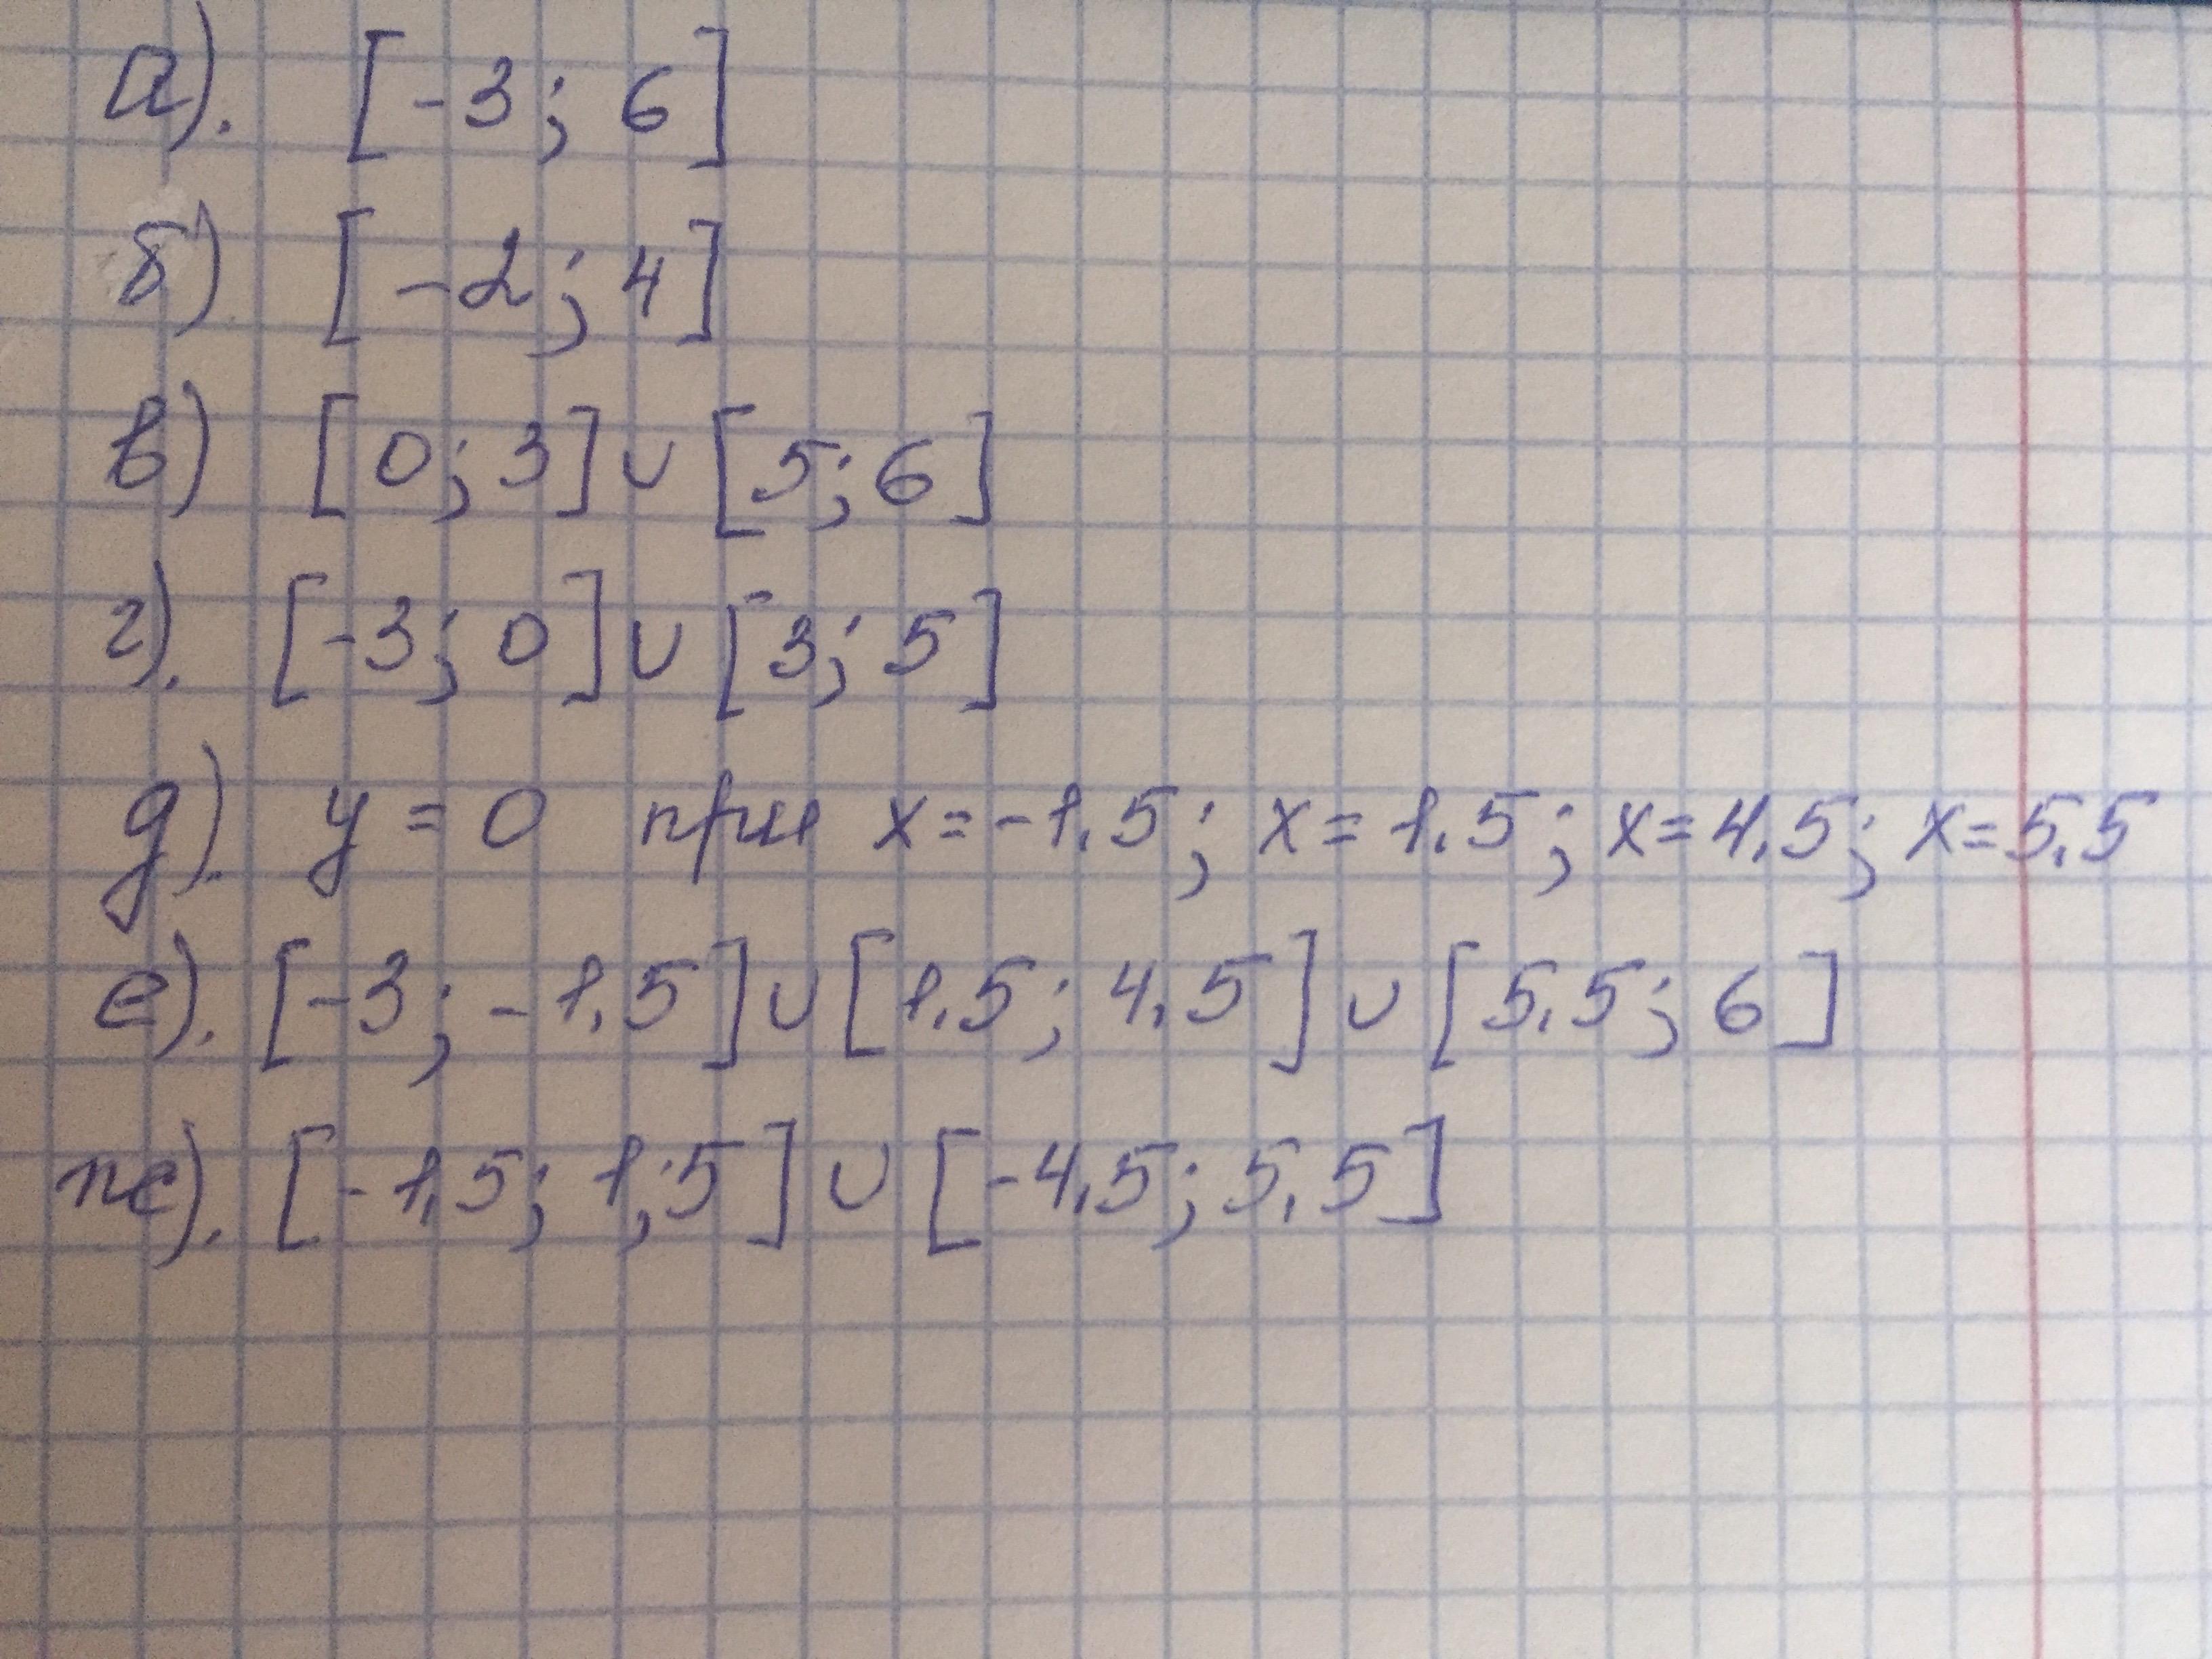 а). [-3; 6]
б) [-2; 4]
в) [0; 3] ∪ [5; 6]
г). [-3; 0] ∪ [3; 5]
д). y = 0 при x=-1.5; x=1.5; x=4.5; x=5.5
е). [-3; -1.5] ∪ [1.5; 4.5] ∪ [5.5; 6]
ж). [-1.5; 1;5] ∪ [-4.5; 5.5]